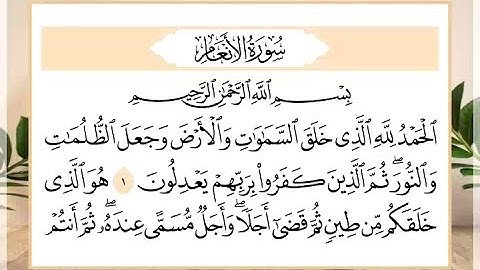 سُورَةُ الْأَنْعَامِ
بِسْمِ اللَّهِ الرَّحْمَٰنِ الرَّحِيمِ
الْحَمْدُ لِلَّهِ الَّذِى خَلَقَ السَّمَٰوَٰتِ وَالْأَرْضَ وَجَعَلَ الظُّلُمَٰتِ
وَالنُّورَ ۖ ثُمَّ الَّذِينَ كَفَرُوا۟ بِرَبِّهِمْ يَعْدِلُونَ ١ هُوَ الَّذِى
خَلَقَكُم مِّن طِينٍ ثُمَّ قَضَىٰٓ أَجَلًا ۖ وَأَجَلٌ مُّسَمًّى عِندَهُۥ ۖ ثُمَّ أَنتُمْ